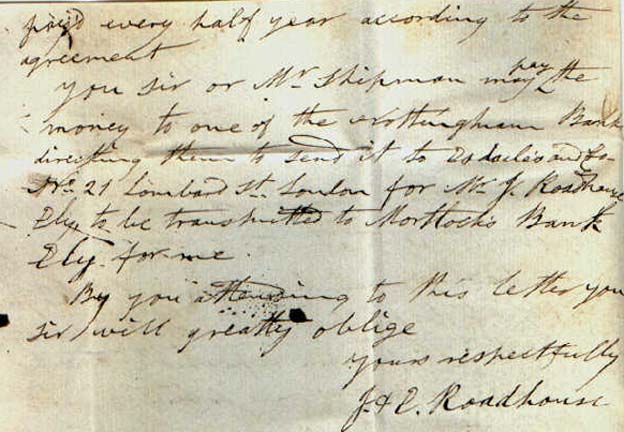 payd every half year according to the
agreement
you sir or Mr Shipman may pay the
money to one of the Nottingham Bank
directing them to send it to and Co
No 21 Lombard St. London for Mr J. Roadhouse
Ely to be transmitted to Mortlocks Bank
Ely. for me.
By you attending to this letter you
sir will greatly oblige
yours respectfully
J. & E. Roadhouse